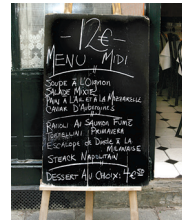 - 12€ -
MENU MIDI
SOUPE À L'OIGNON
SALADE MIXTE
PAIN À L'AIL ET À LA MOZZARELLE
CAVIAR D'AUBERGINES
RAVIOLI AU SAUMON FUMÉ
TORTELLINI PRIMAVERA
ESCALOPE DE DINDE À LA
MILANAISE
STEACK NAPOLITAIN
DESSERT AU CHOIX: 4€50